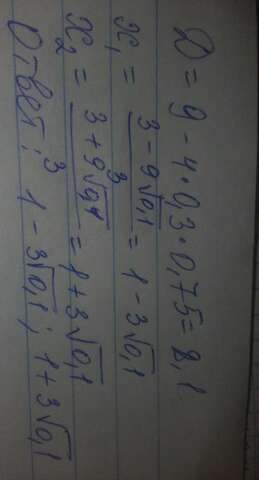 D = 9 - 4·0,3·0,75 = 8,1
x₁ = (3 - 9√0,1)/3 = 1 - 3√0,1
x₂ = (3 + 9√0,1)/3 = 1 + 3√0,1
Ответ: 1 - 3√0,1; 1 + 3√0,1